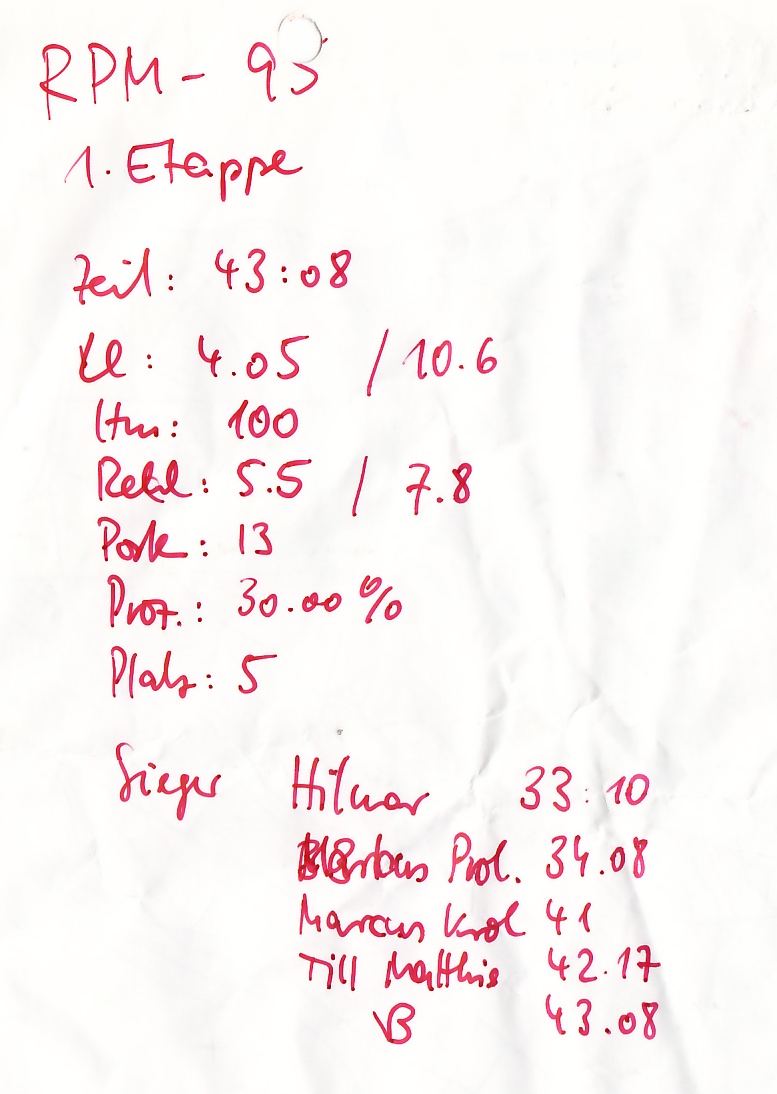 RPM - 95
1. Etappe
Zeit: 43:08
Ll: 4.05 / 10.6
Hm: 100
Rekl: 5.5 / 7.8
Posten: 13
Proz.: 30.00 %
Platz: 5
Sieger Hilmar 33:10
Markus Prol. 34.08
Marcus Krol 41
Till Matthis 42.17
VB 43.08